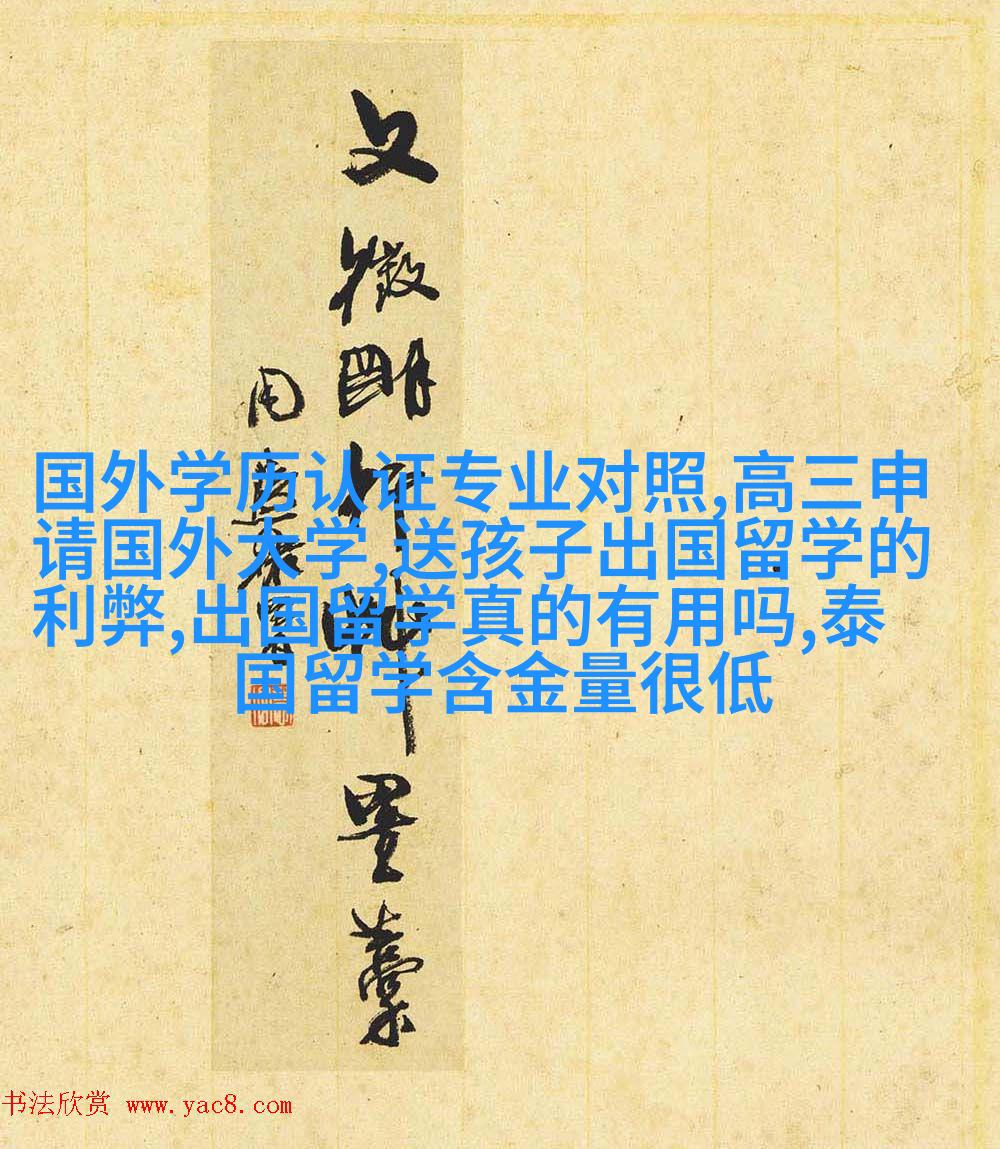 文徵明
墨藁
国外学历认证专业对照,高三申
请国外大学,送孩子出国留学的
利弊,出国留学真的有用吗,泰
国留学含金量很低
书法欣赏 www.yac8.com